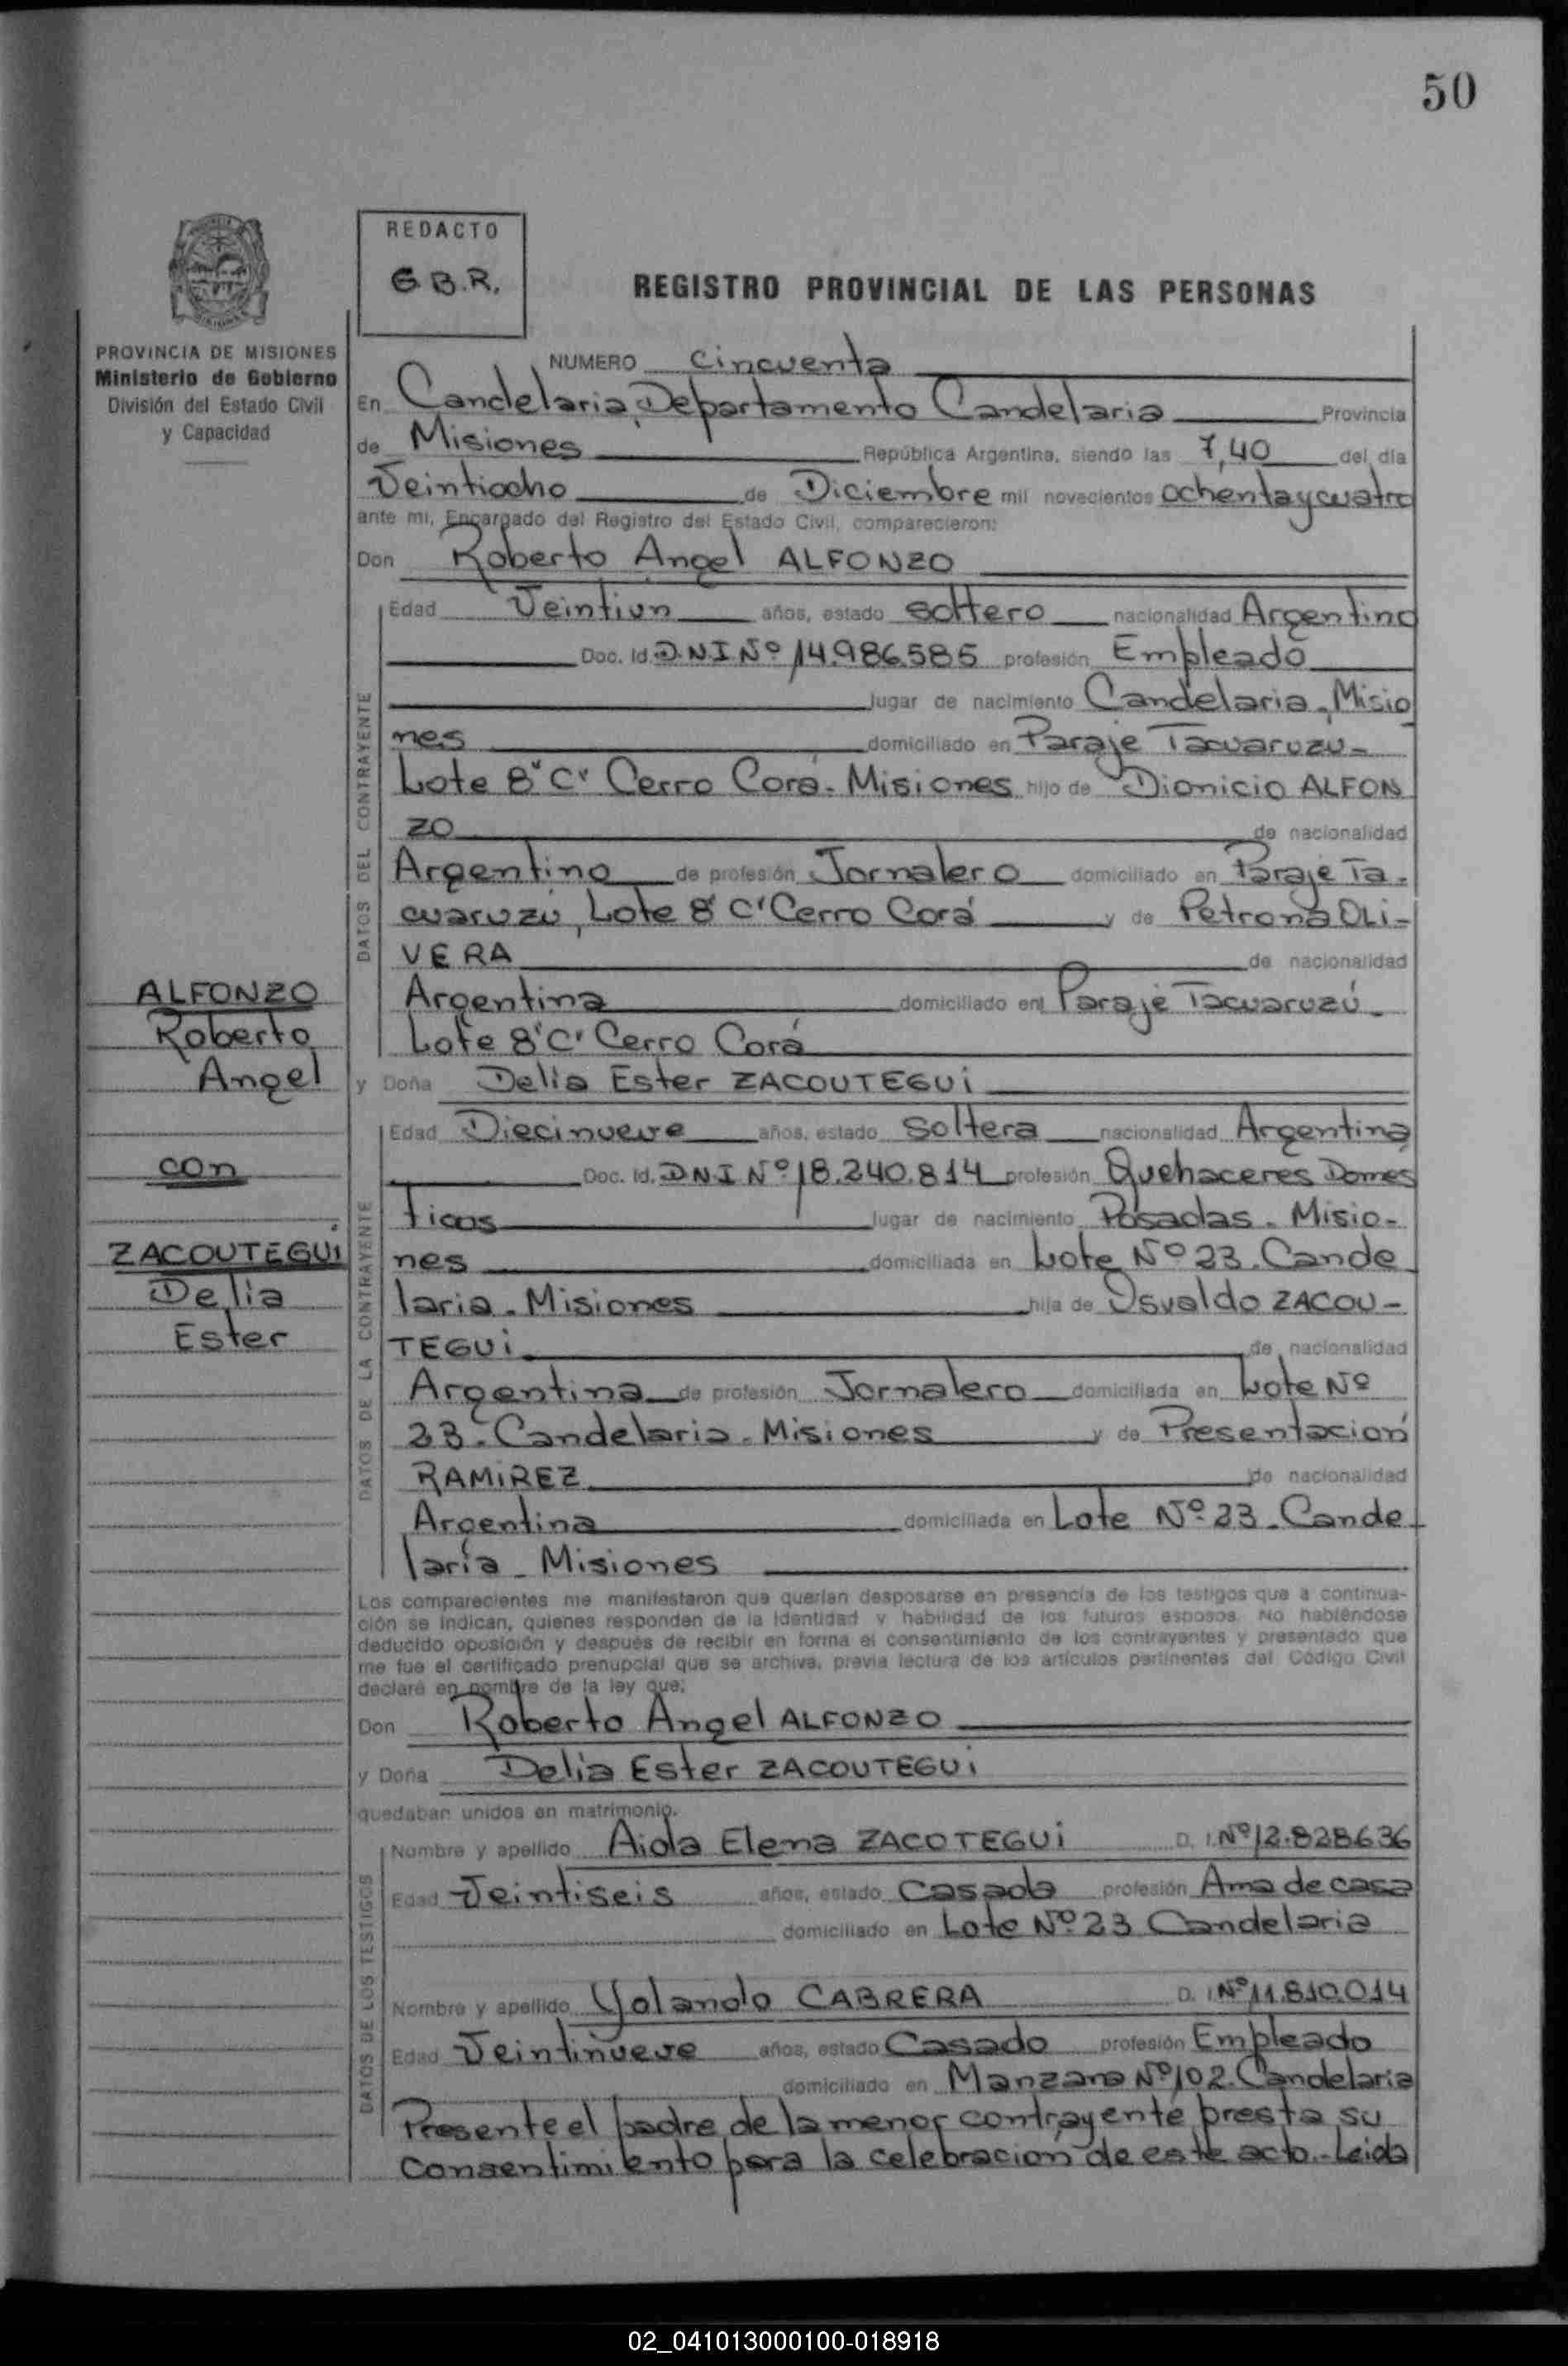 50
REDACTO
G.B.R.
REGISTRO PROVINCIAL DE LAS PERSONAS
PROVINCIA DE MISIONES
Ministerio de Gobierno
División del Estado Civil
y Capacidad
NUMERO cincuenta
En Candelaria, Departamento Candelaria Provincia
de Misiones República Argentina, siendo las 7,40 del día
Veintiocho de Diciembre mil novecientos ochenta y cuatro
ante mi, Encargado del Registro del Estado Civil, comparecieron:
Don Roberto Angel ALFONZO
DATOS DEL CONTRAYENTE
Edad Veintiun años, estado soltero nacionalidad Argentino
Doc. Id. D.N.I Nº 14.986.585 profesión Empleado
lugar de nacimiento Candelaria, Misio
nes domiciliado en Paraje Tacuaruzu-
Lote 8"C" Cerro Corá. Misiones hijo de Dionicio ALFON
ZO de nacionalidad
Argentino de profesión Jornalero domiciliado en Paraje Ta-
cuaruzú, Lote 8"C" Cerro Corá y de Petrona OLI-
VERA de nacionalidad
Argentina domiciliado en Paraje Tacuaruzú.
Lote 8"C" Cerro Corá
y Doña Delia Ester ZACOUTEGUI
ALFONZO
Roberto
Angel
con
ZACOUTEGUI
Delia
Ester
DATOS DE LA CONTRAYENTE
Edad Diecinueve años, estado Soltera nacionalidad Argentina
Doc. Id. DN.I Nº 18.240.814 profesión Quehaceres Domes
ticos lugar de nacimiento Posadas. Misio-
nes domiciliada en Lote Nº 23. Cande
laria. Misiones hija de Osvaldo ZACOU-
TEGUI de nacionalidad
Argentina de profesión Jornalero domiciliada en Lote Nº
23. Candelaria. Misiones y de Presentación
RAMIREZ de nacionalidad
Argentina domiciliada en Lote Nº 23. Cande
laria - Misiones
Los comparecientes me manifestaron que querían desposarse en presencia de los testigos que a continua-
ción se indican, quienes responden de la identidad y habilidad de los futuros esposos. No habiéndose
deducido oposición y después de recibir en forma el consentimiento de los contrayentes y presentado que
me fue el certificado prenupcial que se archiva, previa lectura de los artículos pertinentes del Código Civil
declaré en nombre de la ley que:
Don Roberto Angel ALFONZO
y Doña Delia Ester ZACOUTEGUI
quedaban unidos en matrimonio.
DATOS DE LOS TESTIGOS
Nombre y apellido Aida Elena ZACOTEGUI D. I. Nº 12.828.636
Edad Veintiseis años, estado Casada profesión Ama de casa
domiciliado en Lote Nº 23 Candelaria
Nombre y apellido Yolando CABRERA D. I. Nº 11.810.014
Edad Veintinueve años, estado Casado profesión Empleado
domiciliado en Manzana Nº 102. Candelaria
Presente el padre de la menor contrayente presta su
Consentimiento para la celebración de este acto.-Leida
02_041013000100-018918